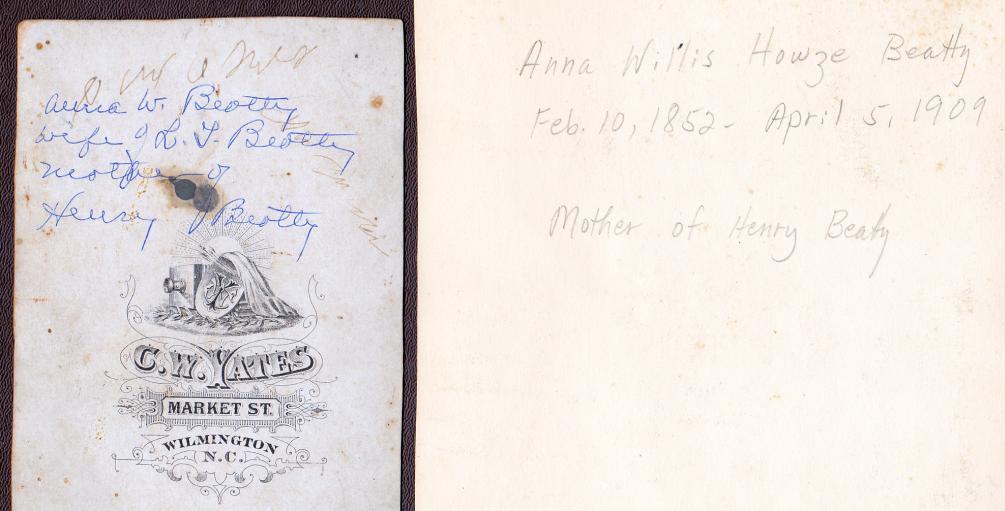 Anna W. Beatty
wife of L. T. Beatty
mother of
Henry Beatty
C.W. YATES
MARKET ST.
WILMINGTON
N.C.
Anna Willis Howze Beatty
Feb. 10, 1852 - April 5, 1909
Mother of Henry Beaty